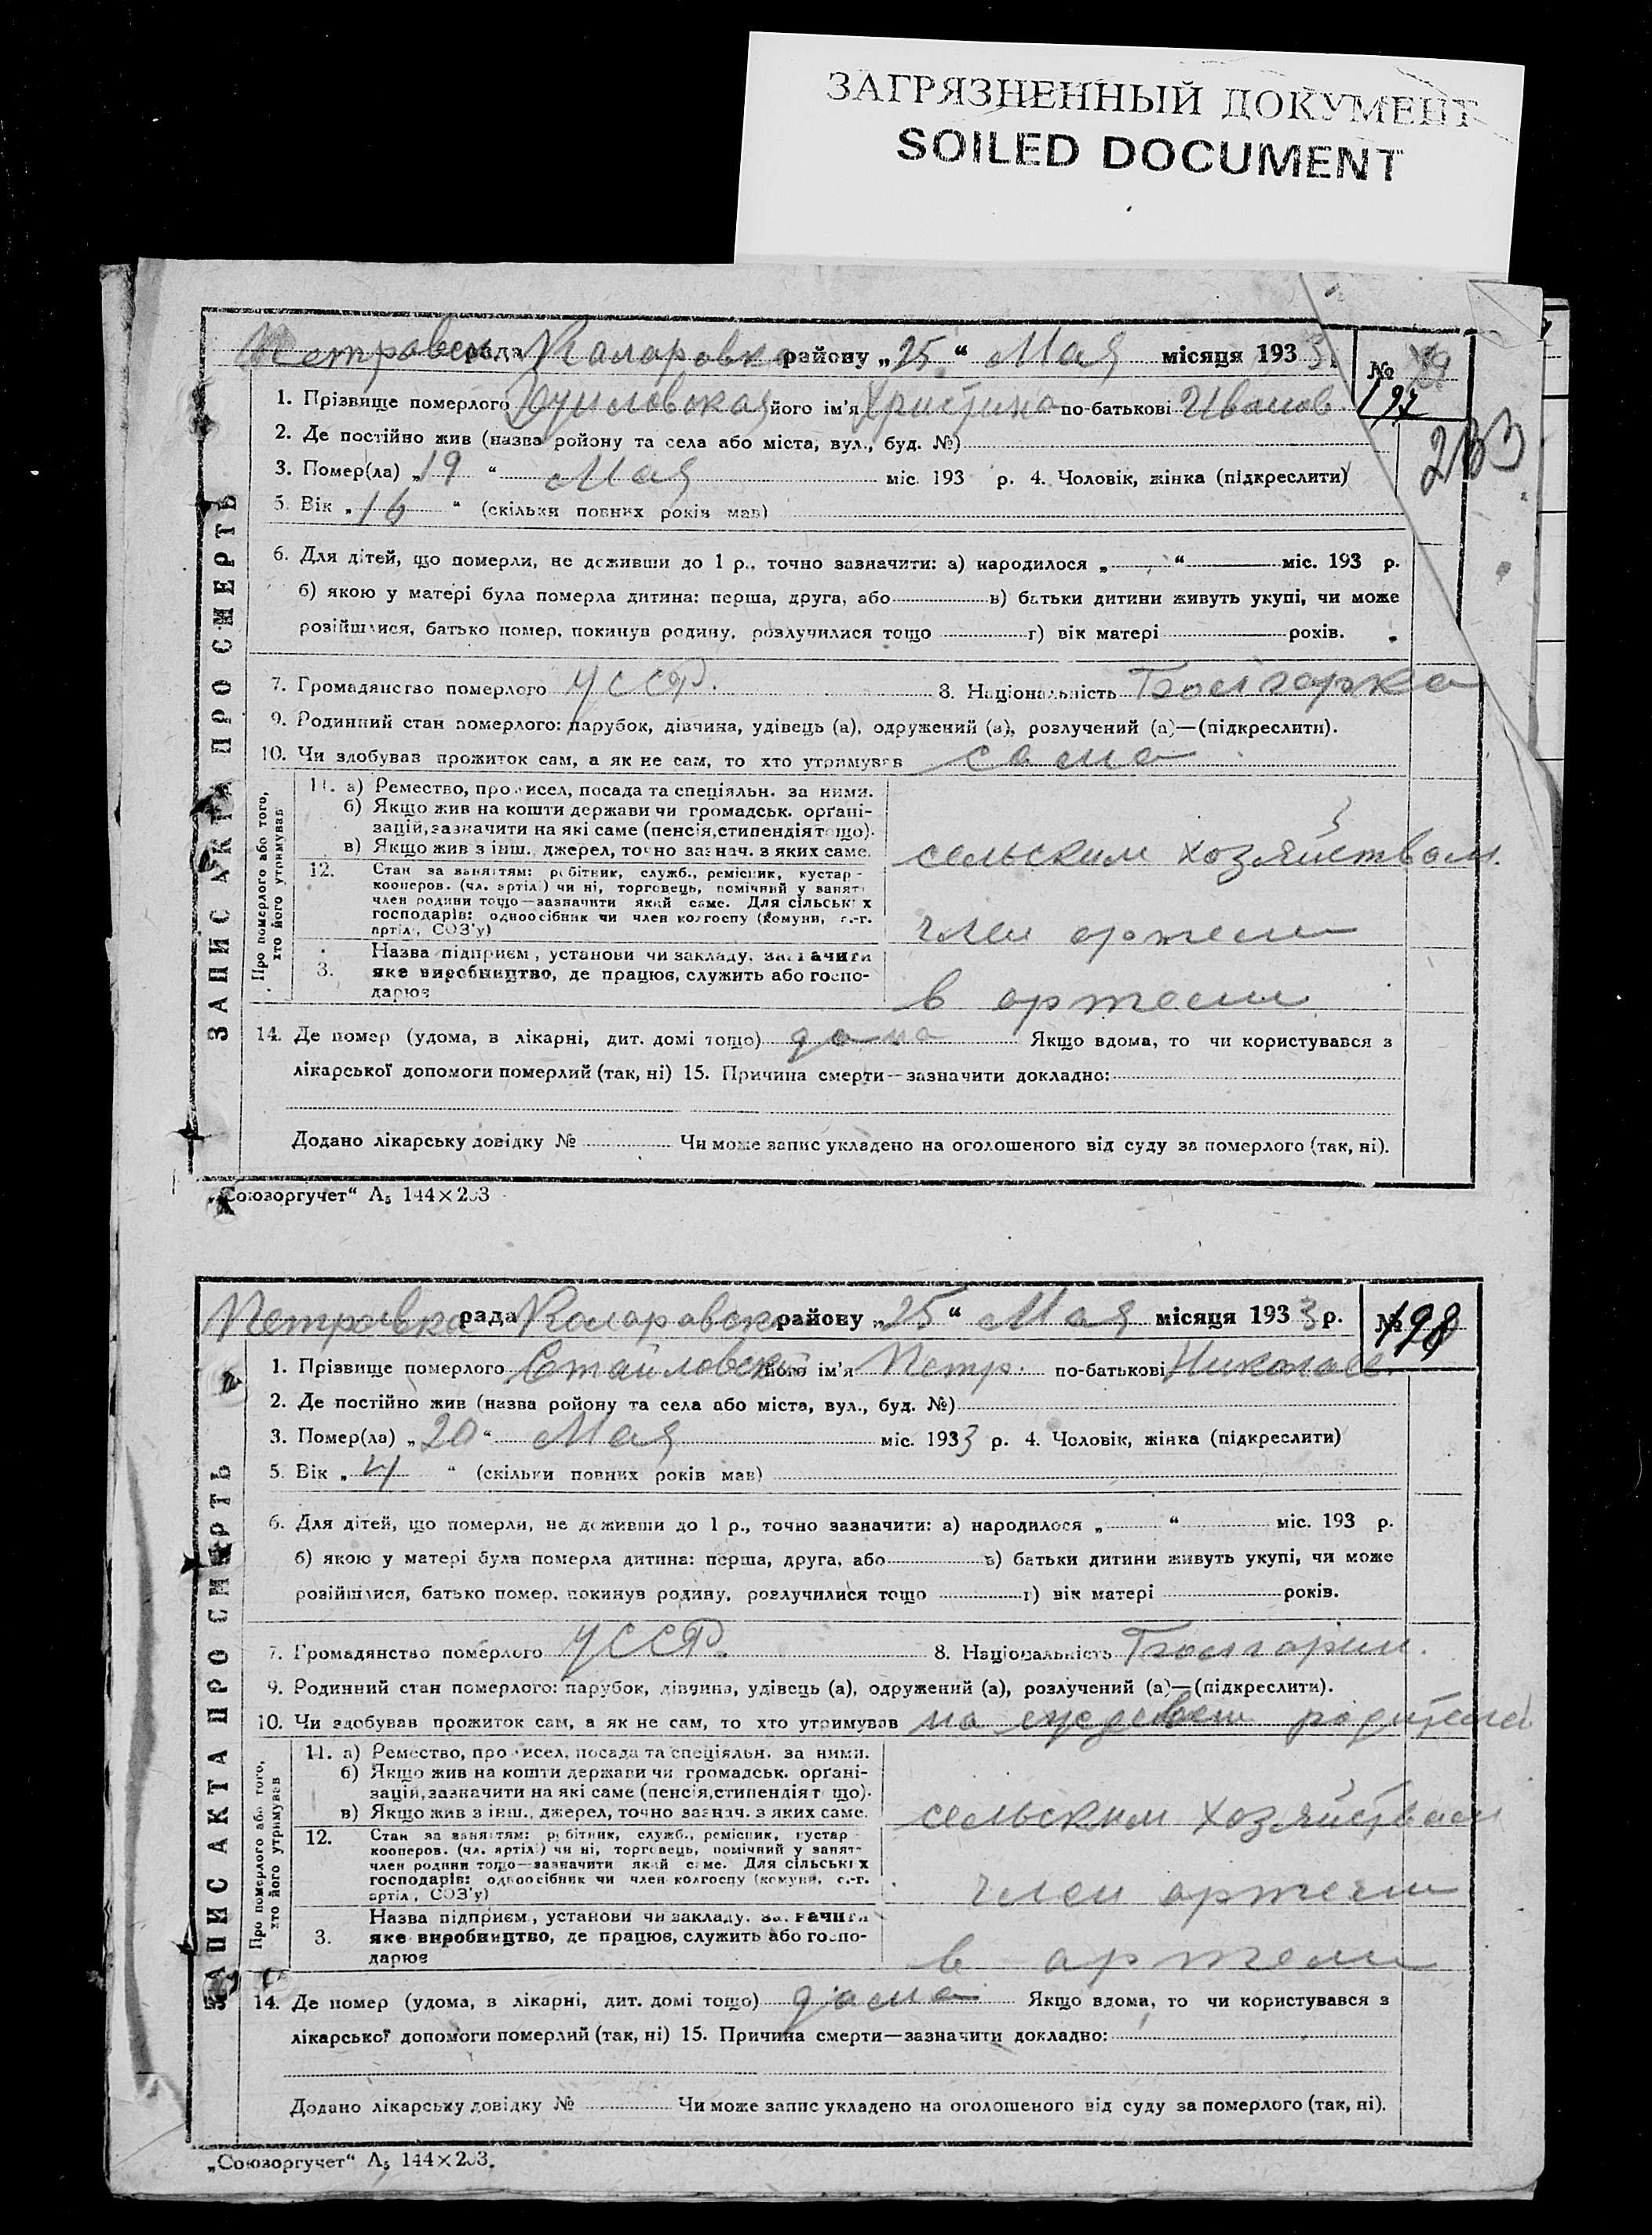 ЗАГРЯЗНЕННЫЙ ДОКУМЕНТ
SOILED DOCUMENT
ЗАПИС АКТА ПРО СМЕРТЬ
рада району „25“ Мая місяця 1933 р.
№
197
233
1. Прізвище померлого його ім'я Христина по-батькові Иванов.
2. Де постійно жив (назва ройону та села або міста, вул., буд. №)
3. Помер(ла) „19“ Мая міс. 193 р. 4. Чоловік, жінка (підкреслити)
5. Вік „16“ (скільки повних років мав)
6. Для дітей, що померли, не доживши до 1 р., точно зазначити: а) народилося „ “ міс. 193 р.
б) якою у матері була померла дитина: перша, друга, або в) батьки дитини живуть укупі, чи може
розійшлися, батько помер, покинув родину, розлучилися тощо г) вік матері років.
7. Громадянство померлого УССР. 8. Національність Болгарка
9. Родинний стан померлого: парубок, дівчина, удівець (а), одружений (а), розлучений (а)—(підкреслити).
10. Чи здобував прожиток сам, а як не сам, то хто утримував сама
Про померлого або того, хто його утримував
11. а) Ремество, промисел, посада та спеціяльн. за ними.
б) Якщо жив на кошти держави чи громадськ. орґані-
зацій, зазначити на які саме (пенсія, стипендія тощо).
в) Якщо жив з інш. джерел, точно зазнач. з яких саме.
сельским хозяйством.
12. Стан за заняттям: робітник, служб., ремісник, кустар-
кооперов. (чл. артілі) чи ні, торговець, помічний у занят.
член родини тощо—зазначити який саме. Для сільських
господарів: одноосібник чи член колгоспу (комуни, с.-г.
артіл., СОЗ'у)
член артели
3. Назва підприєм., установи чи закладу, зазначити
яке виробництво, де працює, служить або госпо-
дарює
в артели
14. Де помер (удома, в лікарні, дит. домі тощо) дома Якщо вдома, то чи користувався з
лікарської допомоги померлий (так, ні) 15. Причина смерти—зазначити докладно:
Додано лікарську довідку № Чи може запис укладено на оголошеного від суду за померлого (так, ні).
„Союзоргучет“ А5 144×203
ЗАПИС АКТА ПРО СМЕРТЬ
Петровка рада Коларовск району „25“ Мая місяця 1933 р.
№ 198
1. Прізвище померлого його ім'я Петр. по-батькові Николаев.
2. Де постійно жив (назва ройону та села або міста, вул., буд. №)
3. Помер(ла) „20“ Мая міс. 1933 р. 4. Чоловік, жінка (підкреслити)
5. Вік „4“ (скільки повних років мав)
6. Для дітей, що померли, не доживши до 1 р., точно зазначити: а) народилося „ “ міс. 193 р.
б) якою у матері була померла дитина: перша, друга, або в) батьки дитини живуть укупі, чи може
розійшлися, батько помер, покинув родину, розлучилися тощо г) вік матері років.
7. Громадянство померлого УССР. 8. Національність Болгарин.
9. Родинний стан померлого: парубок, дівчина, удівець (а), одружений (а), розлучений (а)—(підкреслити).
10. Чи здобував прожиток сам, а як не сам, то хто утримував на родителей
Про померлого або того, хто його утримував
11. а) Ремество, промисел, посада та спеціяльн. за ними.
б) Якщо жив на кошти держави чи громадськ. орґані-
зацій, зазначити на які саме (пенсія, стипендія тощо).
в) Якщо жив з інш. джерел, точно зазнач. з яких саме.
сельским хозяйством
12. Стан за заняттям: робітник, служб., ремісник, кустар-
кооперов. (чл. артілі) чи ні, торговець, помічний у занят.
член родини тощо—зазначити який саме. Для сільських
господарів: одноосібник чи член колгоспу (комуни, с.-г.
артіл., СОЗ'у)
член артели
3. Назва підприєм., установи чи закладу, зазначити
яке виробництво, де працює, служить або госпо-
дарює
в артели
14. Де помер (удома, в лікарні, дит. домі тощо) дома Якщо вдома, то чи користувався з
лікарської допомоги померлий (так, ні) 15. Причина смерти—зазначити докладно:
Додано лікарську довідку № Чи може запис укладено на оголошеного від суду за померлого (так, ні).
„Союзоргучет“ А5 144×203.